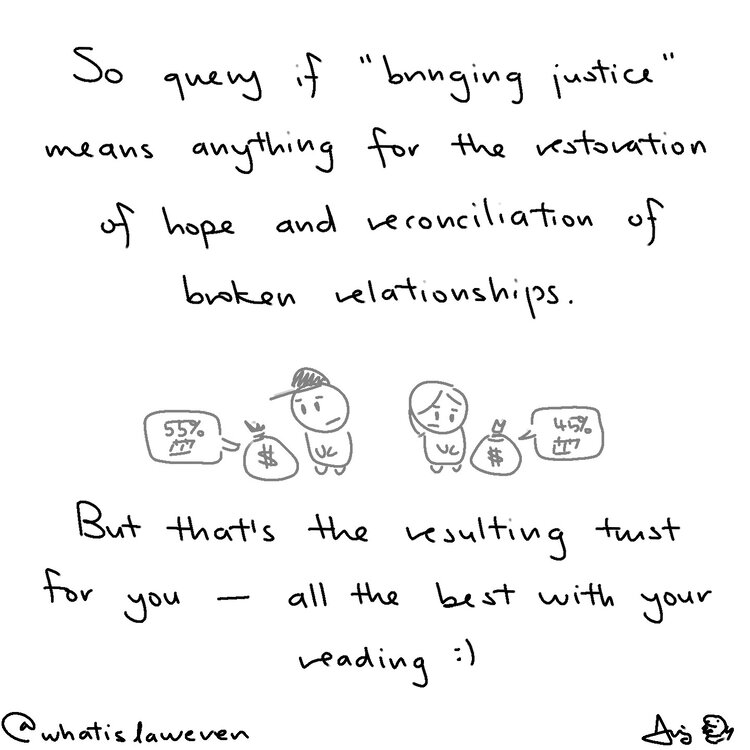 So query if "bringing justice"
means anything for the restoration
of hope and reconciliation of
broken relationships.
55%
$
UC
UC
$
45%
But that's the resulting trust
for you — all the best with your
reading :)
@whatislaweven